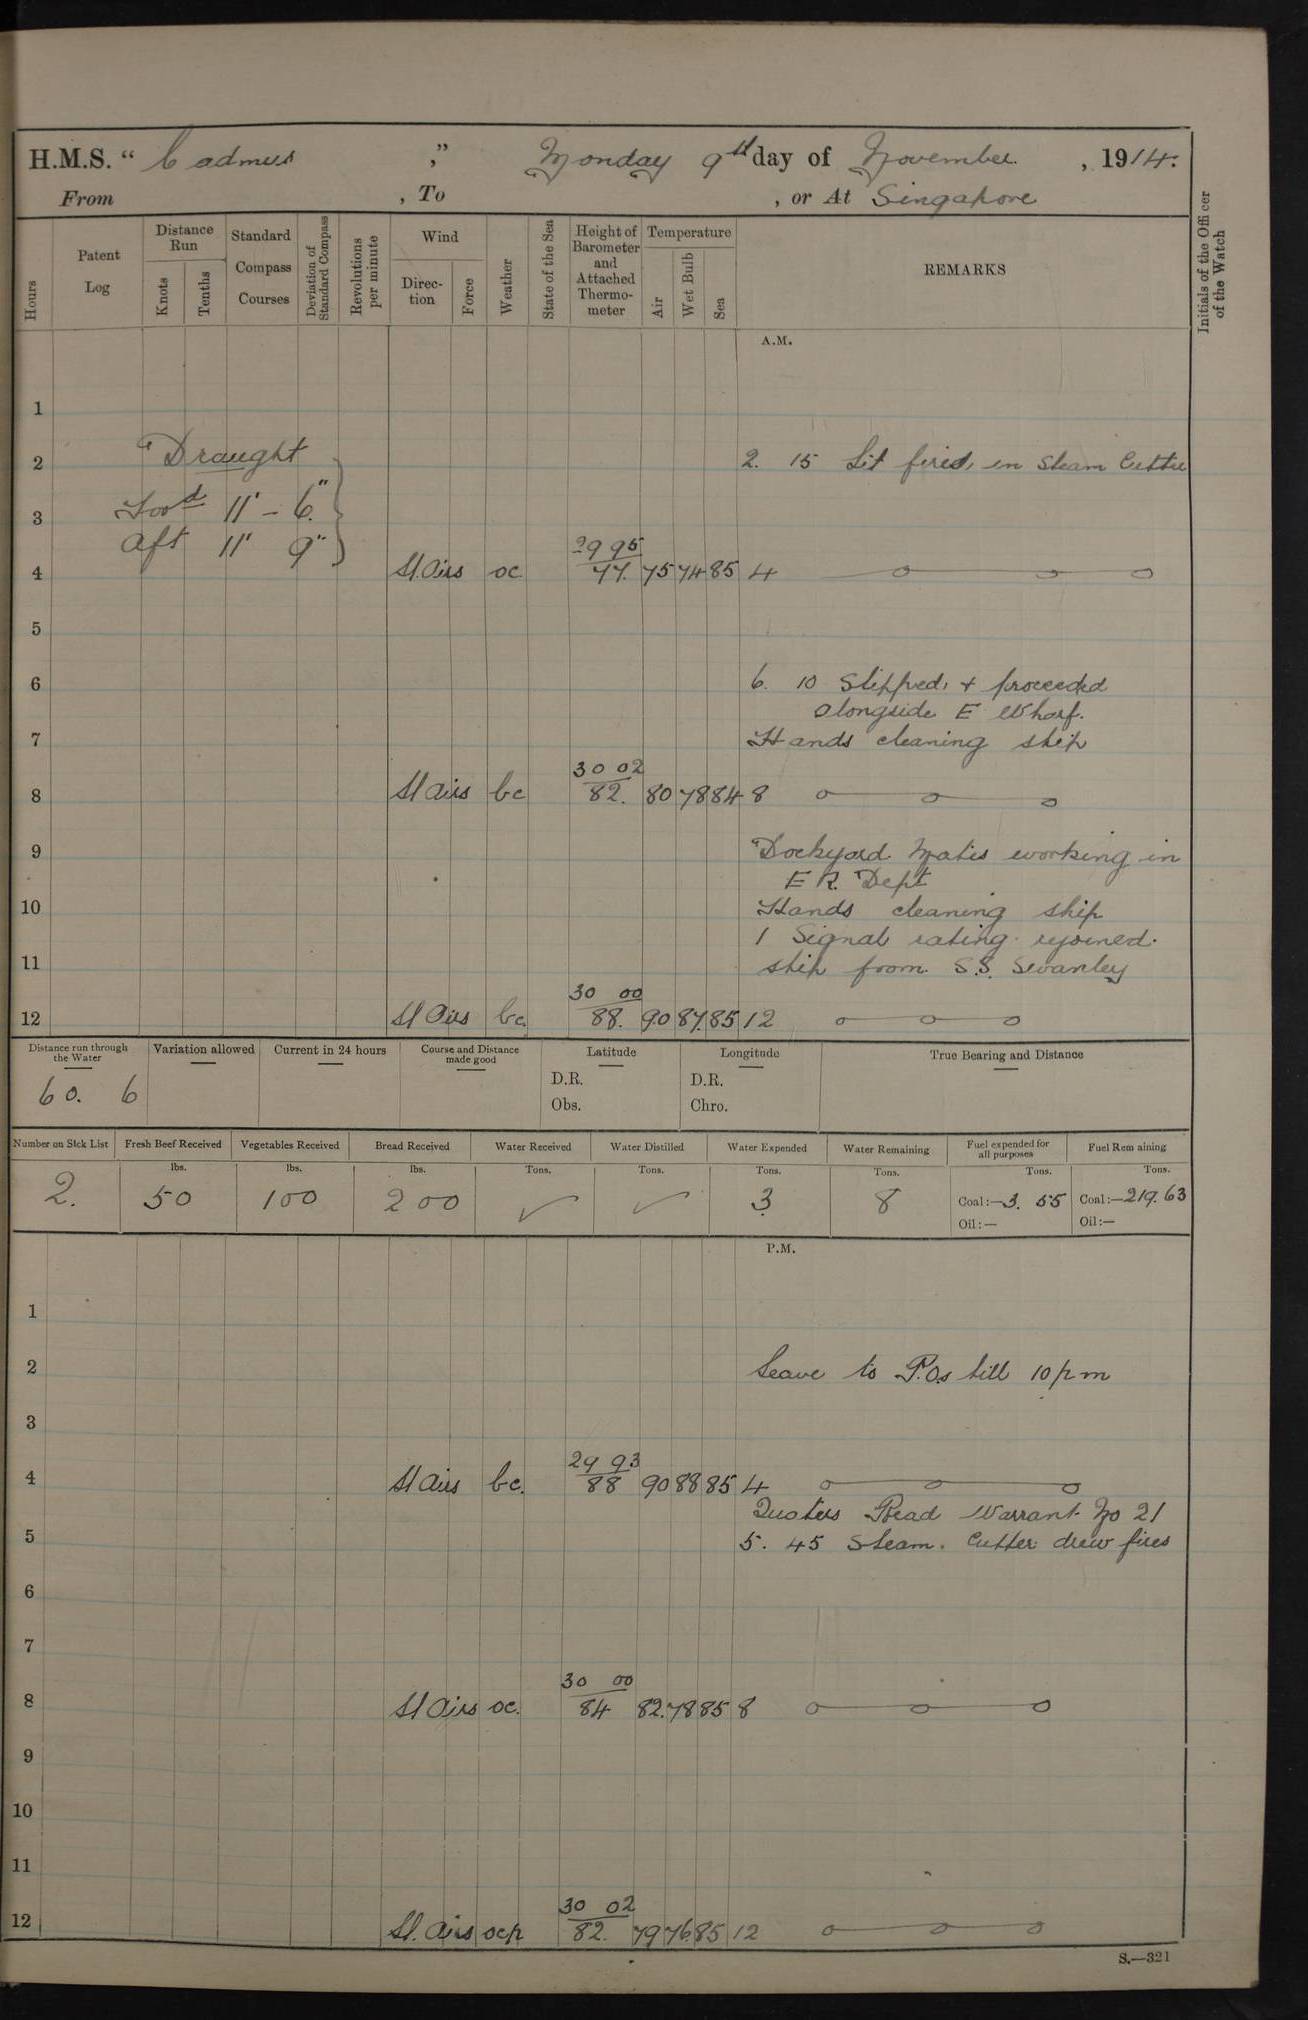 H.M.S. " Cadmus " Monday 9th day of November , 1914.
From , To , or At Singapore
Hours
Patent Log
Distance Run
Knots
Tenths
Standard Compass Courses
Deviation of Standard Compass
Revolutions per minute
Wind
Direction
Force
Weather
State of the Sea
Height of Barometer and Attached Thermometer
Temperature
Air
Wet Bulb
Sea
REMARKS
Initials of the Officer of the Watch
A.M.
1
Draught
2 2. 15 Lit fires in Steam Cutter
Ford 11' - 6"
3
aft 11' 9"
29 95
4 Lt. Airs oc 77. 75 74 85 4
5
6 6. 10 Slipped & proceeded
alongside E Wharf.
7 Hands cleaning ship
30 02
8 Lt Airs bc 82. 80 78 84 8
9 Dockyard Maties working in
E R. Dept
10 Hands cleaning ship
1 Signal rating rejoined
11 ship from S.S. Swanley
30 00
12 Lt Airs bc. 88. 90 87. 85 12
Distance run through the Water
Variation allowed
Current in 24 hours
Course and Distance made good
Latitude
Longitude
True Bearing and Distance
D.R. D.R.
60. 6
Obs. Chro.
Number on Sick List
Fresh Beef Received
Vegetables Received
Bread Received
Water Received
Water Distilled
Water Expended
Water Remaining
Fuel expended for all purposes
Fuel Remaining
lbs. lbs. lbs. Tons. Tons. Tons. Tons. Tons. Tons.
2. 50 100 200 ✓ ✓ 3 8 Coal:—3. 55 Coal:—219.63
Oil:— Oil:—
P.M.
1
2 Leave to P.Os till 10 p m
3
29 93
4 Lt Airs bc. 88 90 88 85 4
Quarters Read Warrant No 21
5 5. 45 Steam Cutter drew fires
6
7
30 00
8 Lt Airs oc. 84 82. 78 85 8
9
10
11
30 02
12 Lt. Airs ocp 82. 79 76 85 12
S.—321